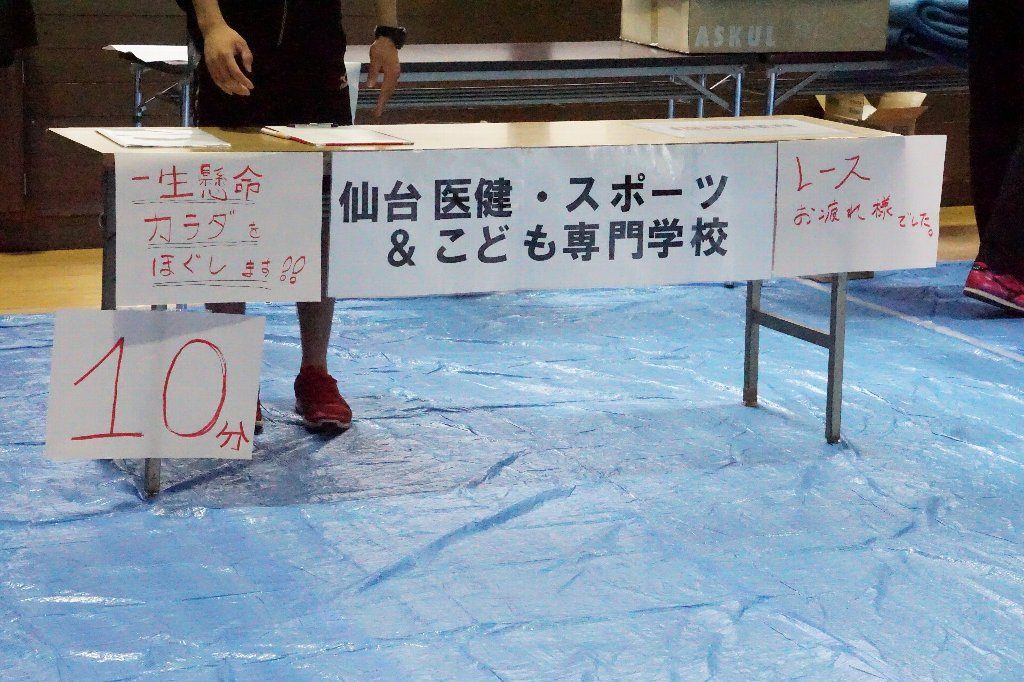 ASKUL
一生懸命
カラダを
ほぐします!!
仙台医健・スポーツ
&こども専門学校
レース
お疲れ様でした。
10分